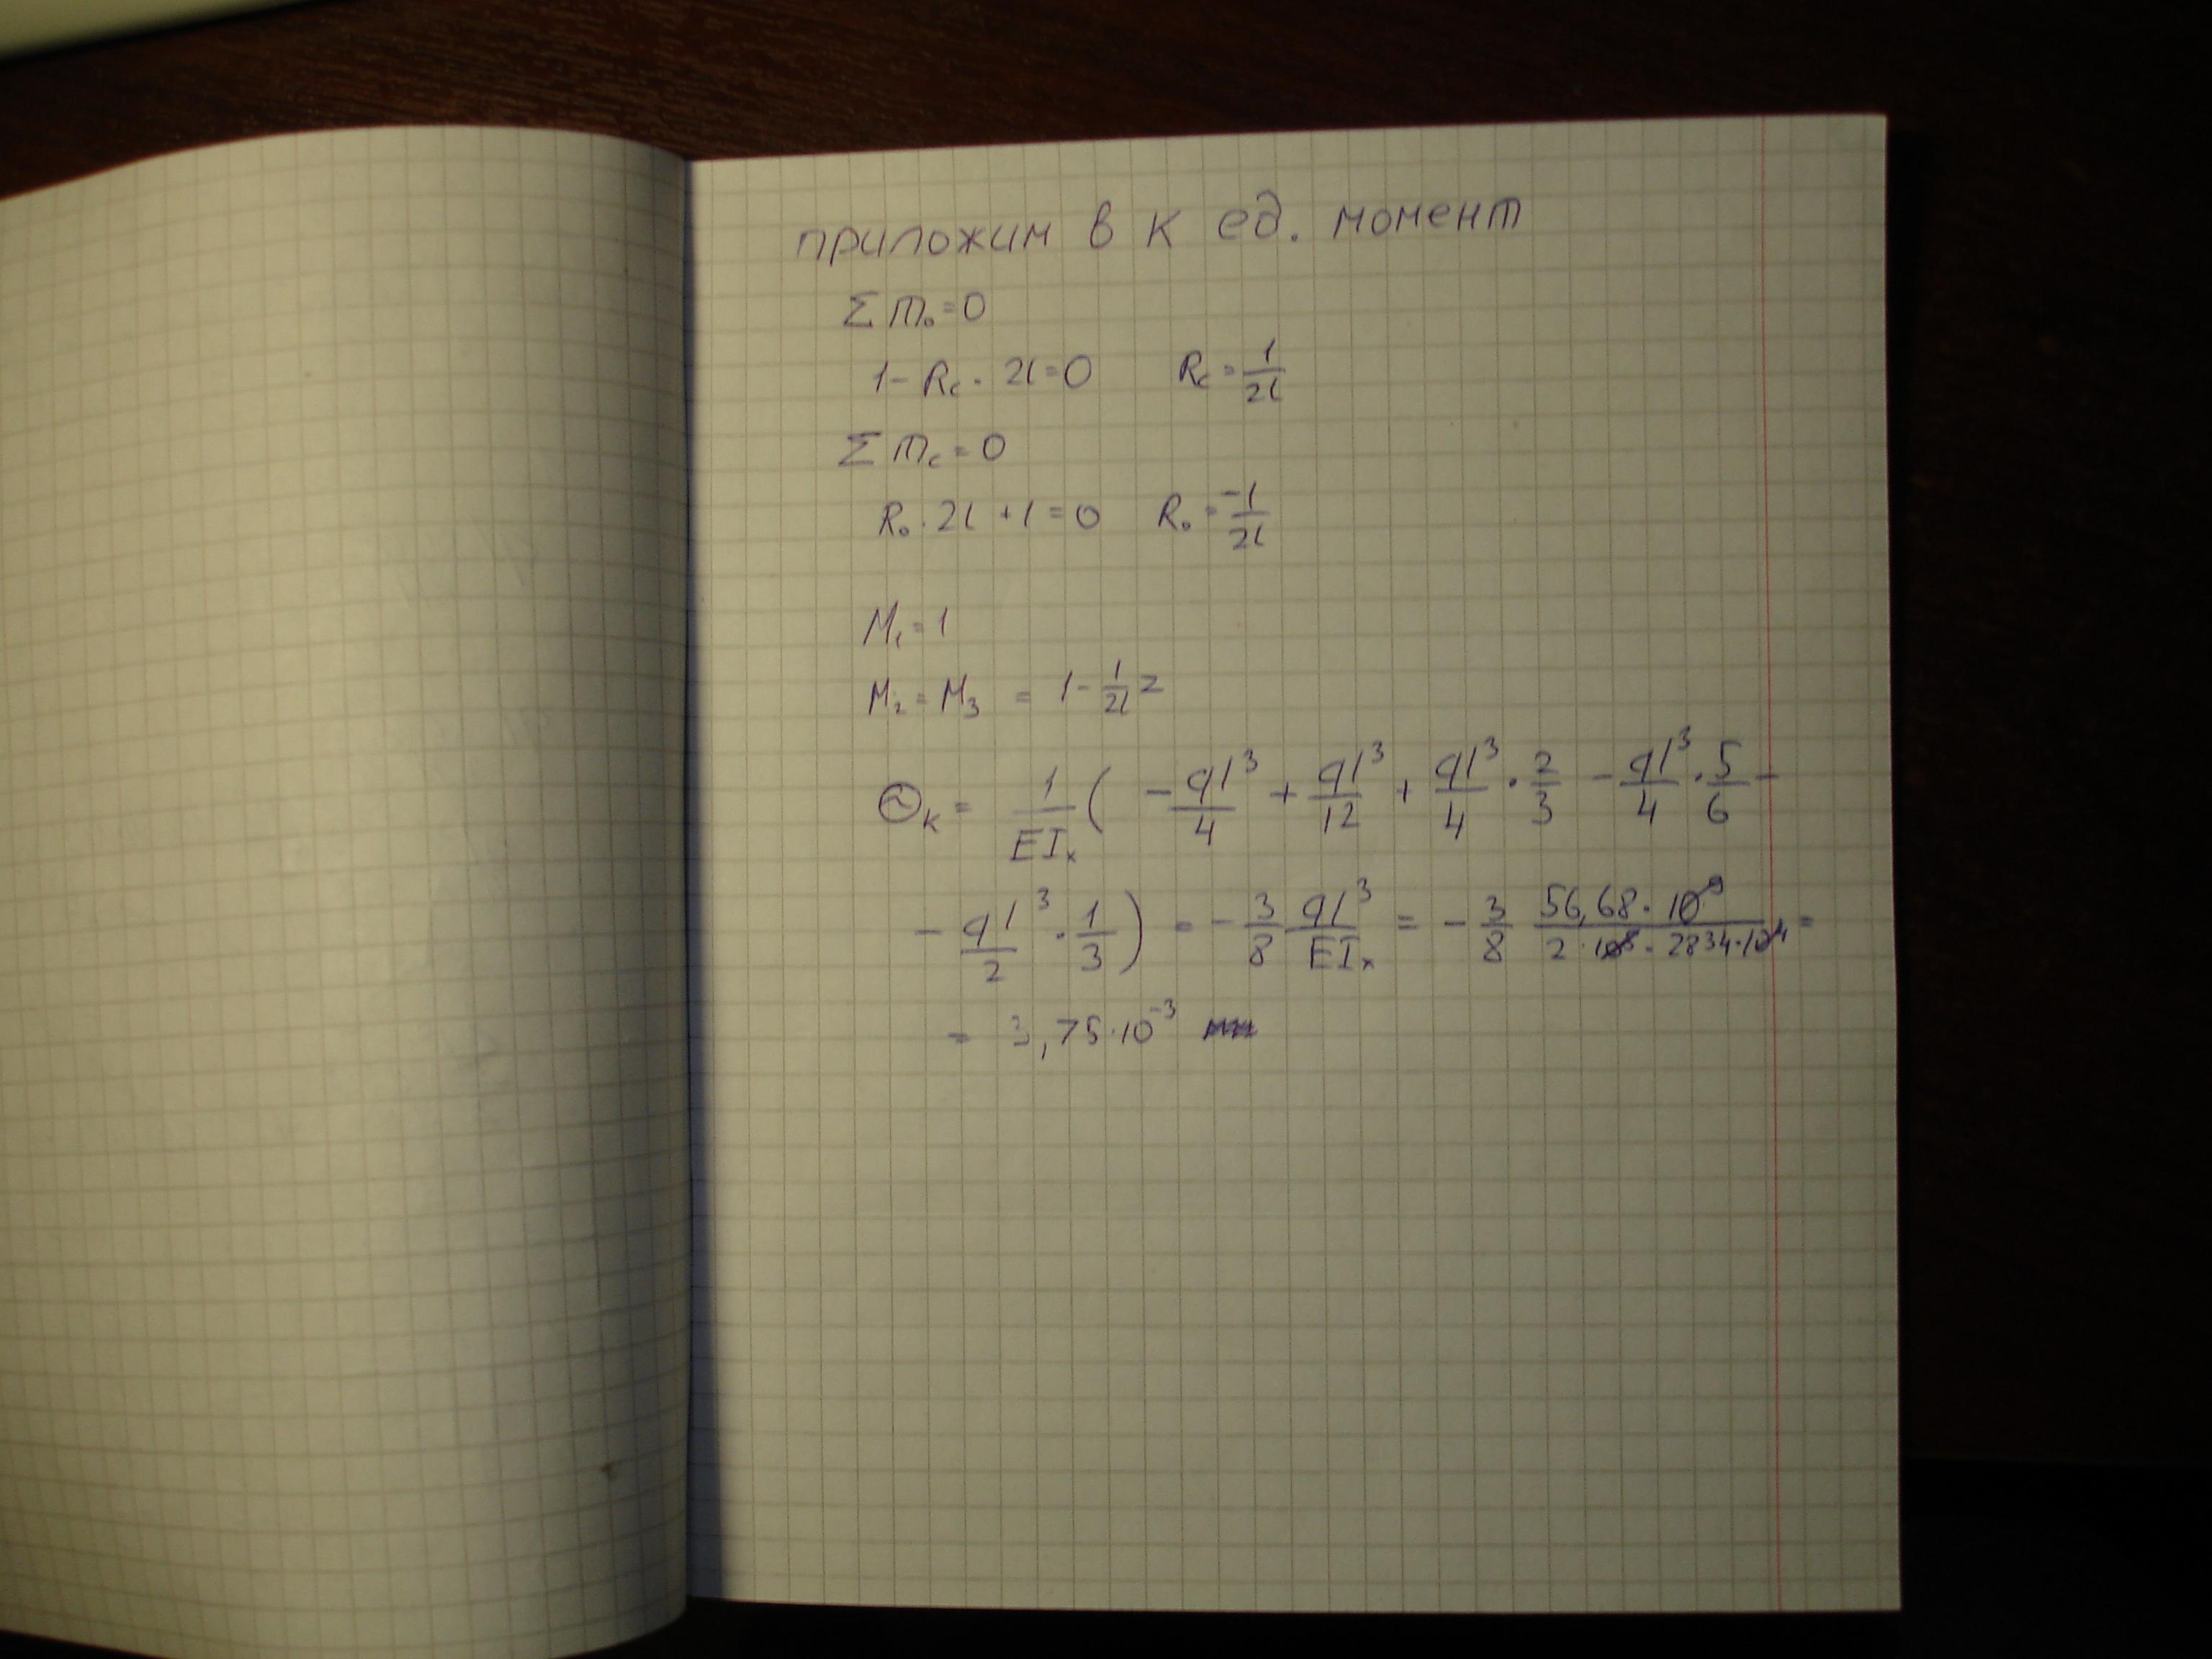 приложим в К ед. момент
Σ m₀ = 0
1 - R_c · 2l = 0 R_c = 1/2l
Σ m_c = 0
R₀ · 2l + 1 = 0 R₀ = -1/2l
M₁ = 1
M₂ = M₃ = 1 - 1/2l z
Θ_K = 1/EIₓ ( - ql³/4 + ql³/12 + ql³/4 · 2/3 - ql³/4 · 5/6 -
- ql³/2 · 1/3 ) = - 3/8 ql³/EIₓ = - 3/8 56,68 · 10⁹/2 · 10⁵ · 2834 · 10⁴ =
= 3,75 · 10⁻³